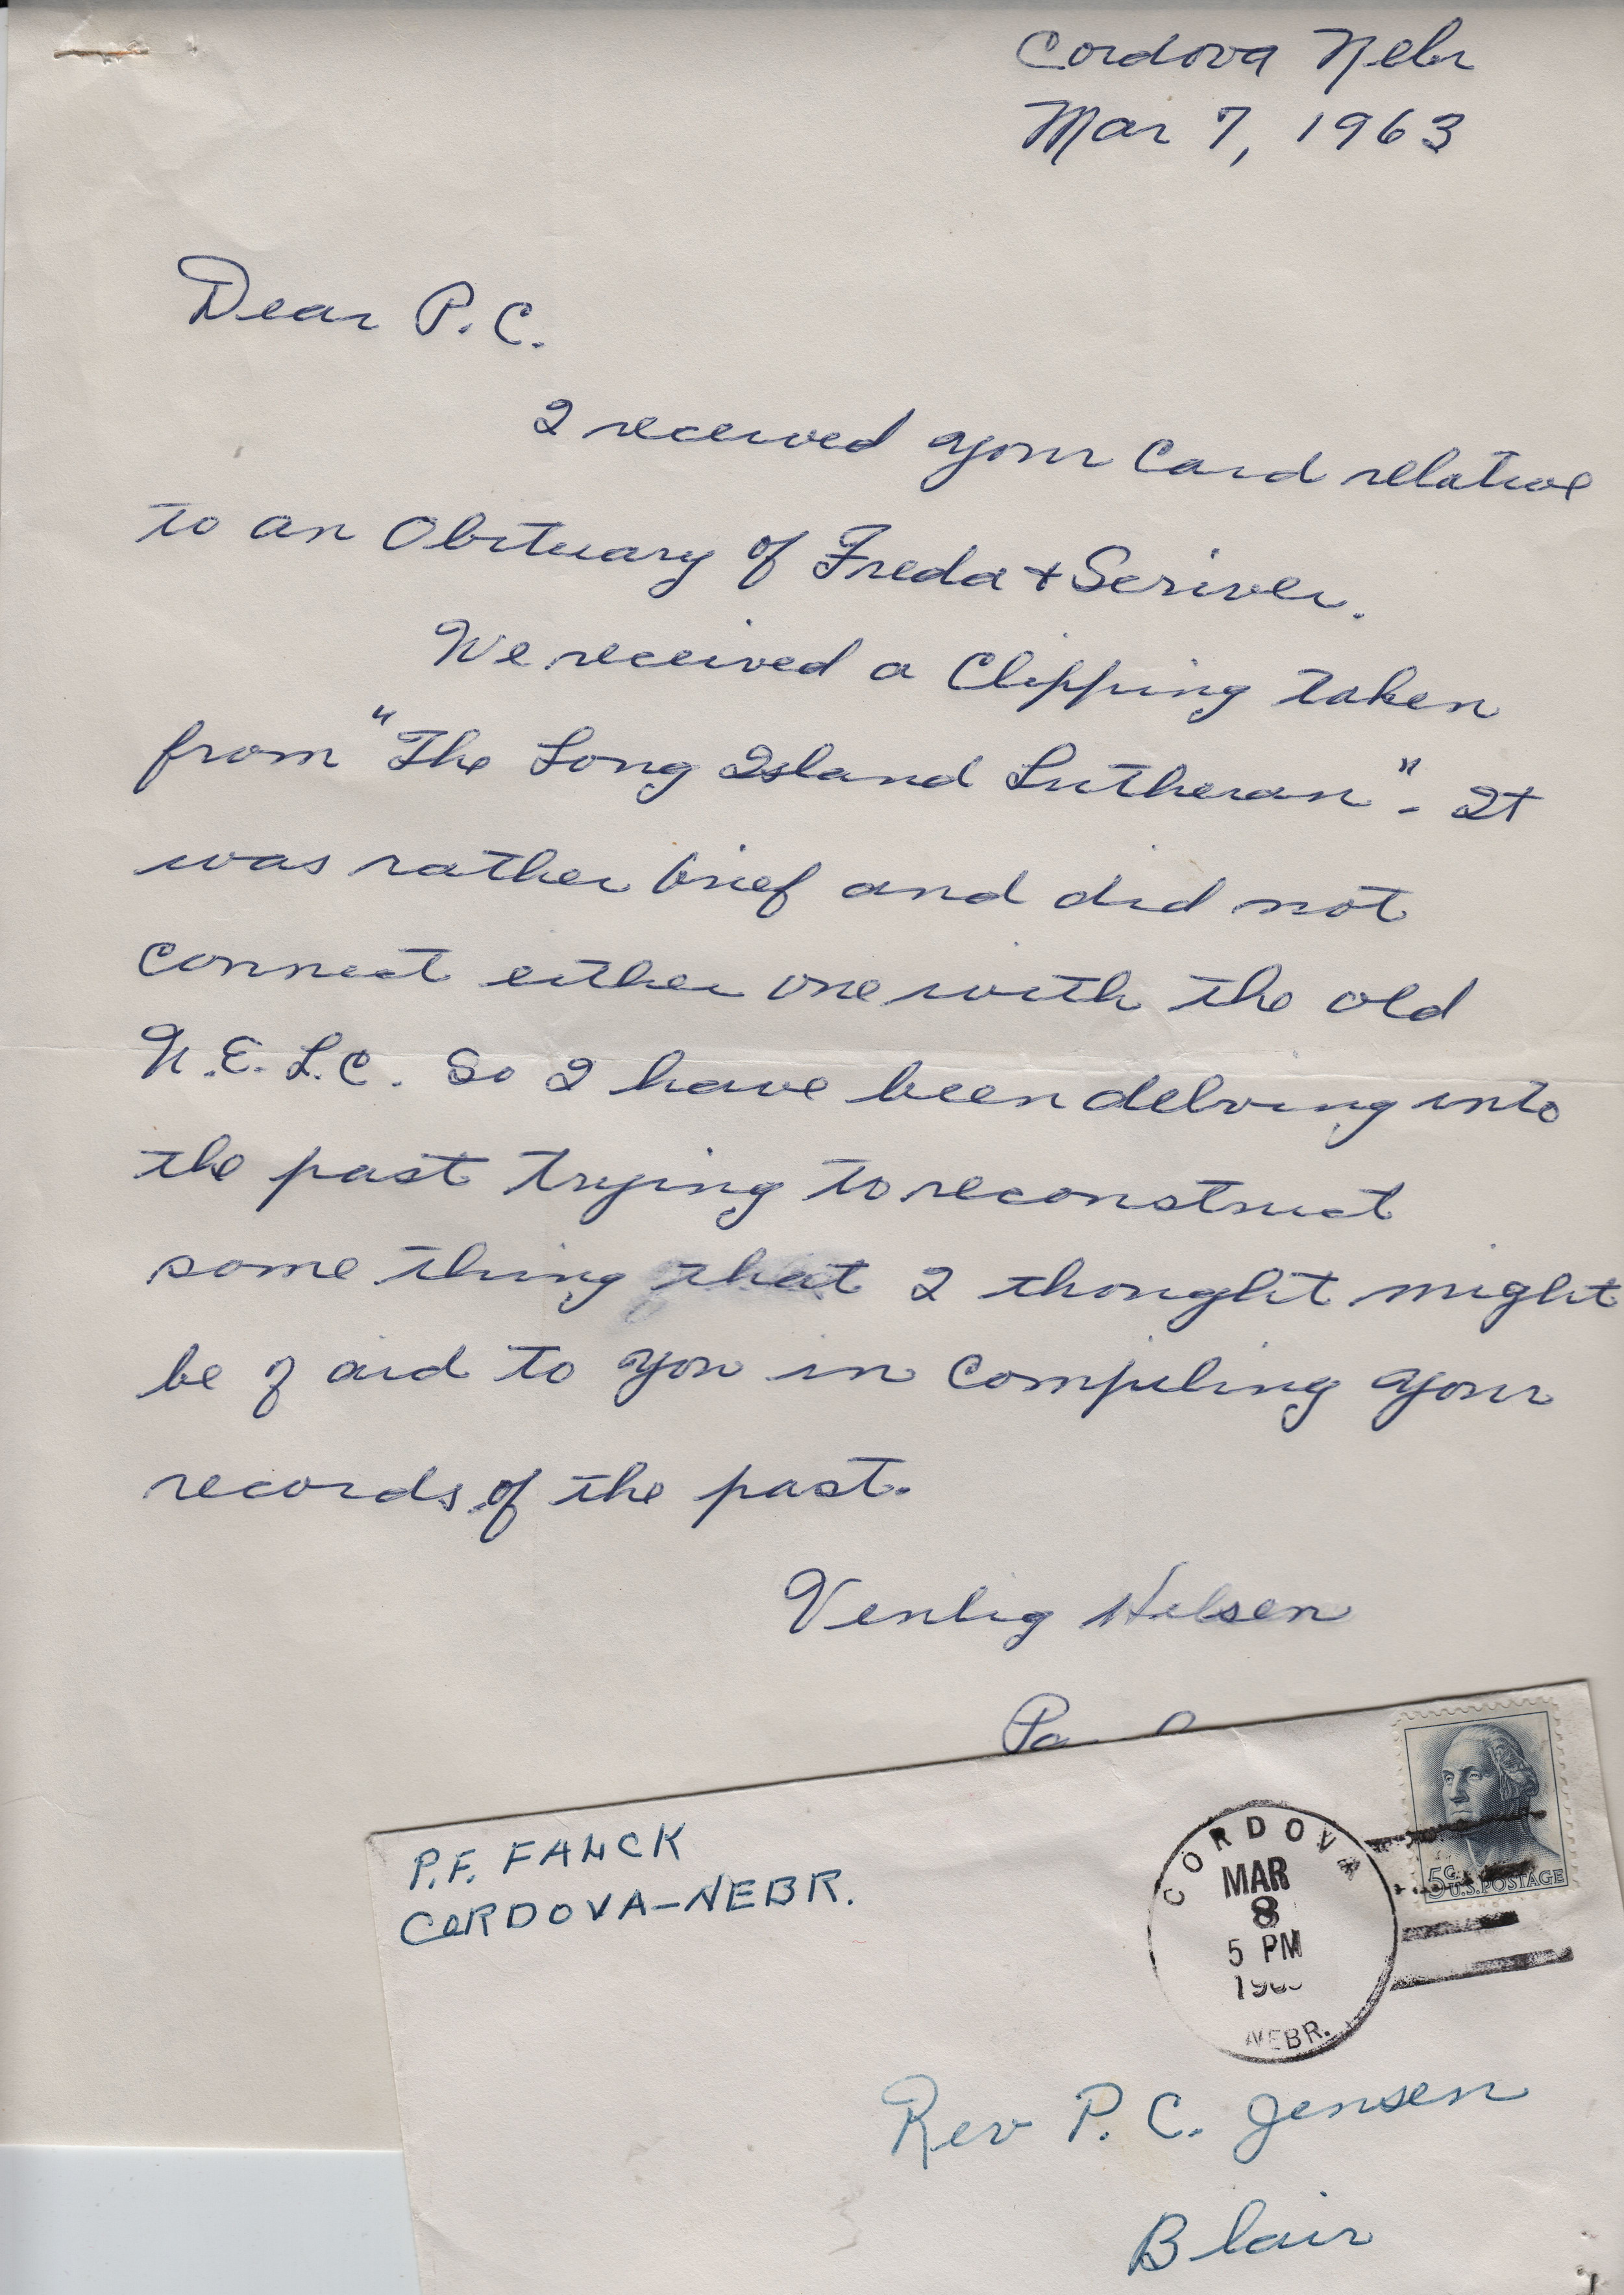 Cordova Nebr
Mar 7, 1963
Dear P.C.
I received your Card relative
to an Obituary of Freda + Scriver.
We received a Clipping taken
from "The Long Island Lutheran". It
was rather brief and did not
connect either one with the old
U.E.L.C. So I have been delving into
the past trying to reconstruct
some thing that I thought might
be of aid to you in Compiling your
records of the past.
Venlig Hilsen
P.F. FALCK
CORDOVA-NEBR.
CORDOVA
MAR
8
5 PM
NEBR.
5¢ U.S. POSTAGE
Rev P.C. Jensen
Blair